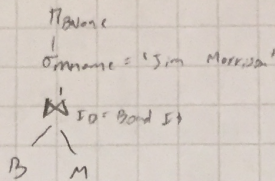 π Bname
σ mname = 'Jim Morrison'
⋈ ID = Band Id
B M